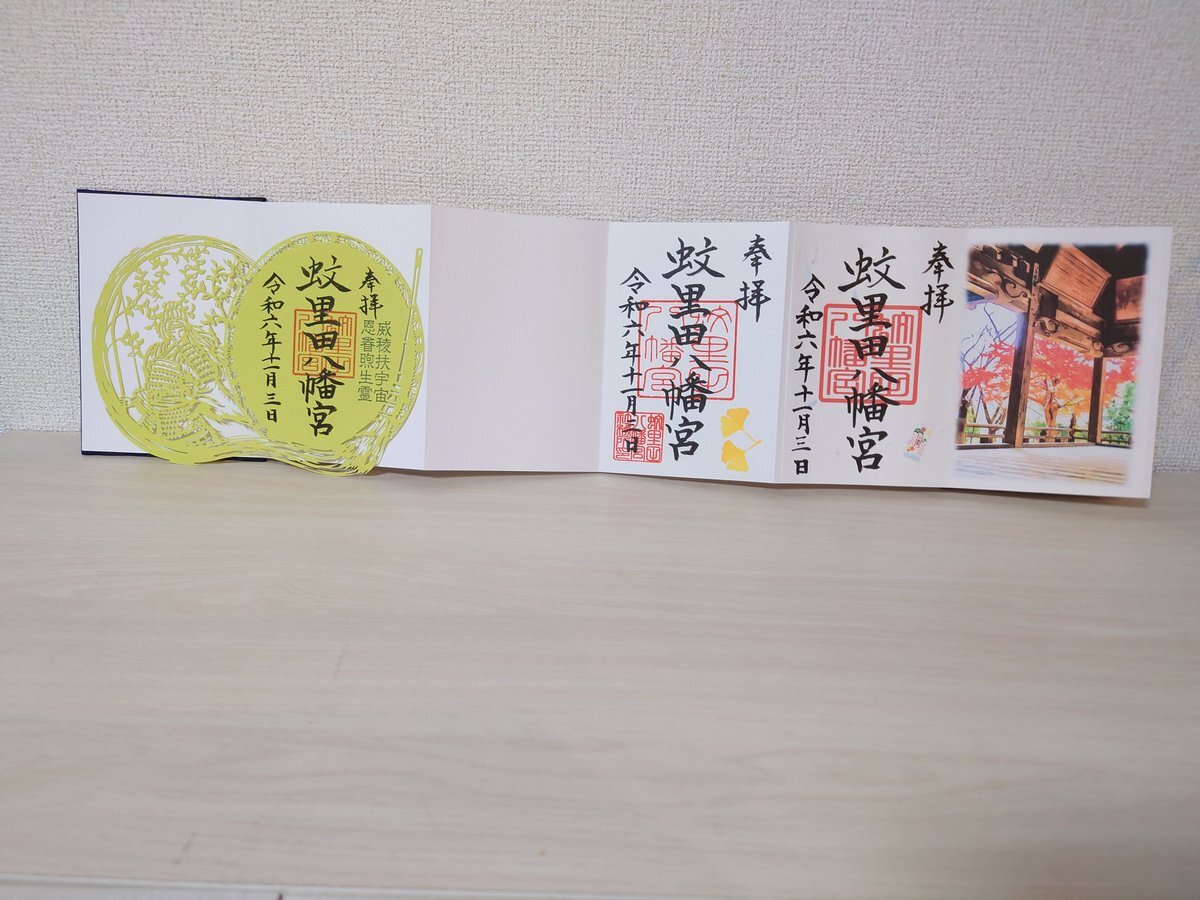 奉拝
蚊里田八幡宮
令和六年十一月三日
奉拝
蚊里田八幡宮
令和六年十一月三日
奉拝
威稜扶宇宙
恩眷煦生霊
蚊里田八幡宮
令和六年十一月三日